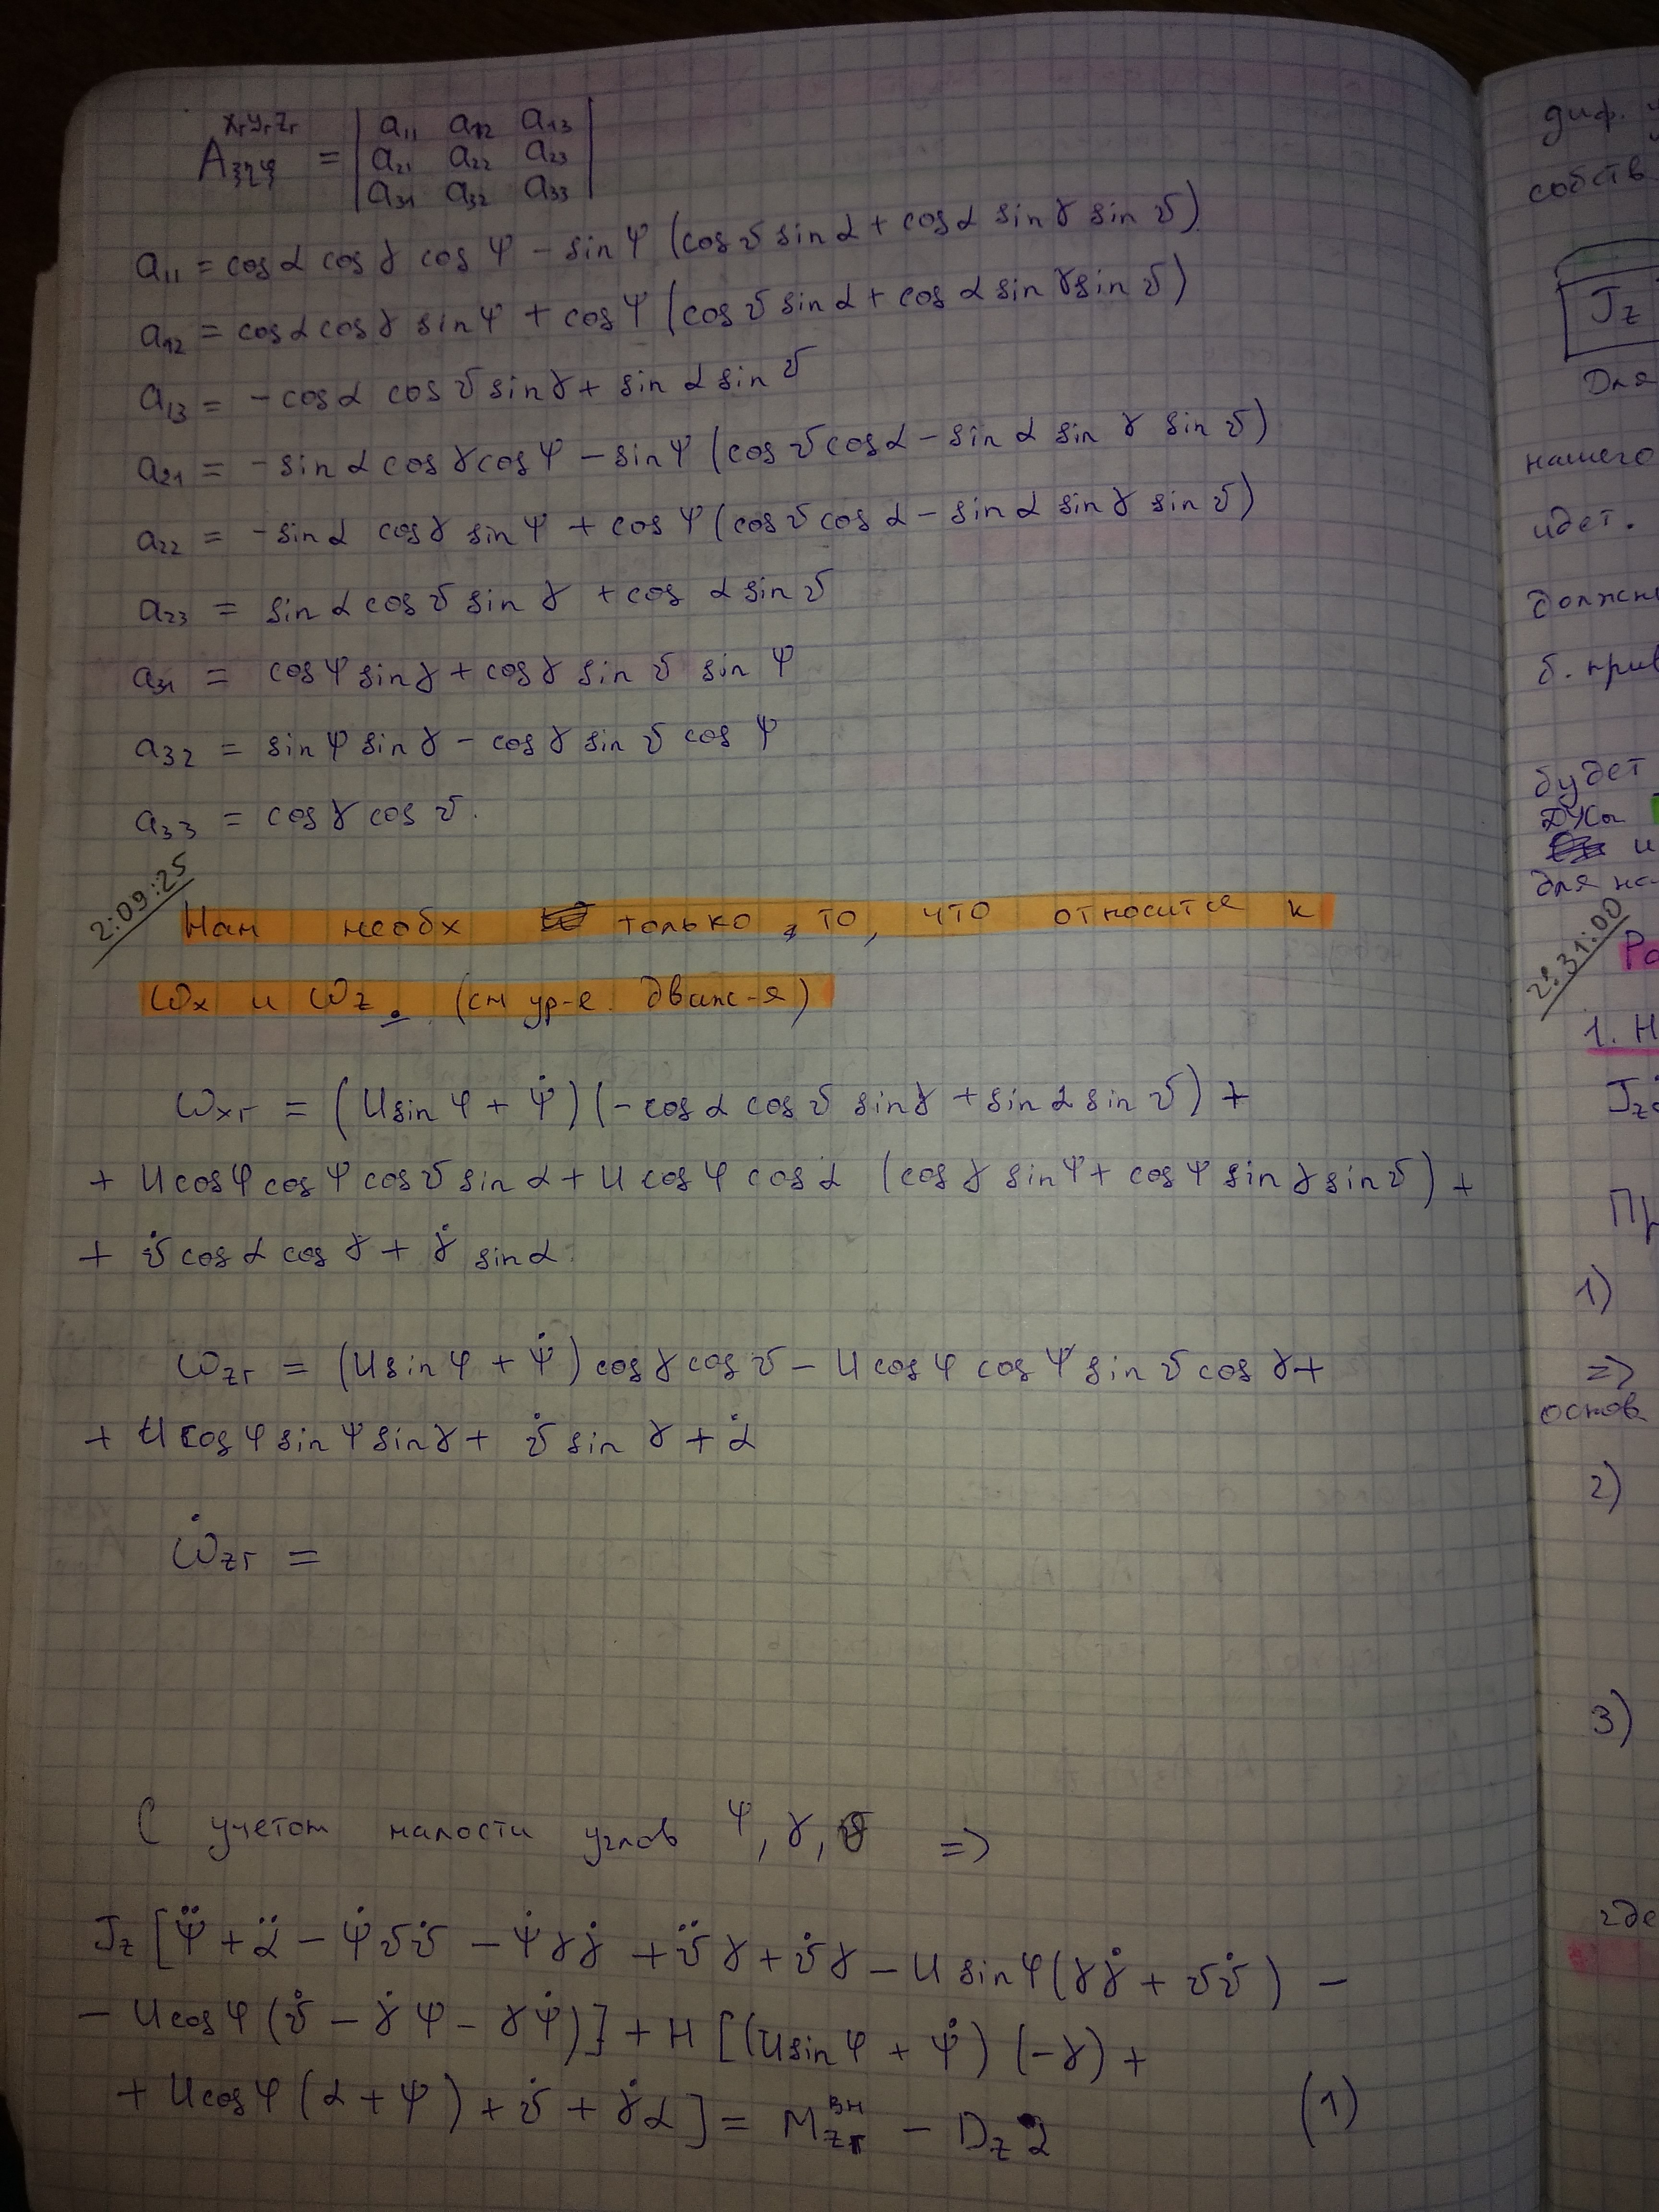 xг yг zг
Aξηζ = | a₁₁ a₁₂ a₁₃ |
| a₂₁ a₂₂ a₂₃ |
| a₃₁ a₃₂ a₃₃ |
a₁₁ = cosα cosγ cosψ − sinψ (cosϑ sinα + cosα sinγ sinϑ)
a₁₂ = cosα cosγ sinψ + cosψ (cosϑ sinα + cosα sinγ sinϑ)
a₁₃ = −cosα cosϑ sinγ + sinα sinϑ
a₂₁ = −sinα cosγ cosψ − sinψ (cosϑ cosα − sinα sinγ sinϑ)
a₂₂ = −sinα cosγ sinψ + cosψ (cosϑ cosα − sinα sinγ sinϑ)
a₂₃ = sinα cosϑ sinγ + cosα sinϑ
a₃₁ = cosψ sinγ + cosγ sinϑ sinψ
a₃₂ = sinψ sinγ − cosγ sinϑ cosψ
a₃₃ = cosγ cosϑ.
2:09:25
Нам необх только, то, что относится к
ωx и ωz. (см ур-е движ-я)
ωxг = (U sinφ + ψ̇)(−cosα cosϑ sinγ + sinα sinϑ) +
+ U cosφ cosψ cosϑ sinα + U cosφ cosα (cosγ sinψ + cosψ sinγ sinϑ) +
+ ϑ̇ cosα cosγ + γ̇ sinα.
ωzг = (U sinφ + ψ̇) cosγ cosϑ − U cosφ cosψ sinϑ cosγ +
+ U cosφ sinψ sinγ + ϑ̇ sinγ + α̇
ω̇zг =
С учетом малости углов ψ, γ, ϑ =>
Jz [ψ̈ + α̈ − ψ̇ϑϑ̇ − ψ̇γγ̇ + ϑ̈γ + ϑ̇γ − U sinφ(γγ̇ + ϑϑ̇) −
− U cosφ (ϑ̇ − γ̇ψ − γψ̇)] + H [(U sinφ + ψ̇)(−γ) +
+ U cosφ (α + ψ) + ϑ̇ + γ̇α] = Mzгᵇᴴ − Dz2 (1)
диф.
собств
Jz
Для
нашего
идет.
должн
б. прив
будет
ДУСы
и
для на
2:31:00
1. Н
Jz
1)
=>
основ.
2)
3)
где